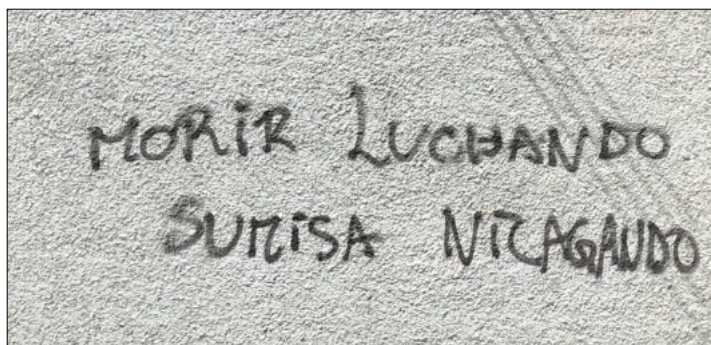 MORiR LUCHANDO
SUMiSA Ni CAGANDO